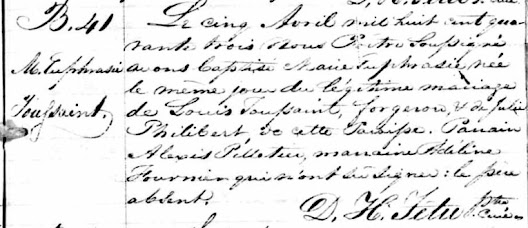 B. 41
M. Euphrasie
Toussaint.
Le cinq Avril mil huit cent qua-
rante trois Nous Prêtre Soussigné
avons Baptisé Marie Euphrasie, née
le même jour du légitime mariage
de Louis Toussaint, forgeron, & de Julie
Philibert, de cette Paroisse. Parrain
Alexis Pelletier, marraine Adeline
Fournier qui n'ont su signer: le père
absent.
D. H. Têtu Ptre
Curé